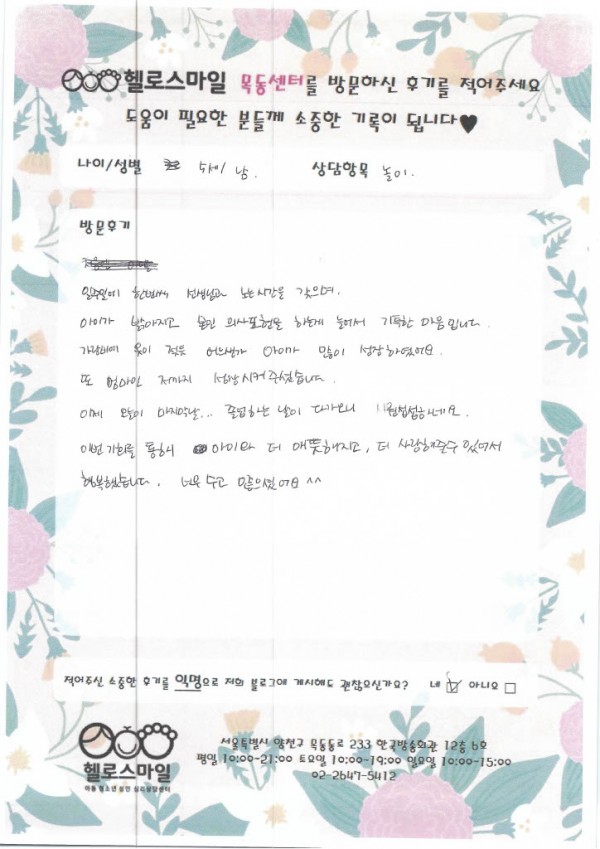 헬로스마일 목동센터를 방문하신 후기를 적어주세요
도움이 필요한 분들께 소중한 기록이 됩니다♥
나이/성별 5세/ 남. 상담항목 놀이.
방문후기
일주일에 한번씩 선생님과 노는시간을 갖으며.
아이가 밝아지고 본인 의사표현을 하는게 늘어서 기특한 마음입니다.
가랑비에 옷이 젖듯 어느샌가 아이가 많이 성장하였어요.
또 엄마인 저까지 성장시켜주셨습니다.
이제 오늘이 마지막날... 졸업하는 날이 다가오니 시원섭섭하네요.
이번 기회를 통해 아이와 더 애뜻해지고, 더 사랑해줄수 있어서
행복했습니다. 너무 수고 많으셨어요 ^^
적어주신 소중한 후기를 익명으로 저희 블로그에 게시해도 괜찮으신가요? 네 ☑ 아니요 □
헬로스마일
아동 청소년 성인 심리상담센터
서울특별시 양천구 목동동로 233 한국방송회관 12층 6호
평일 10:00-21:00 토요일 10:00-19:00 일요일 10:00-15:00
02-2647-5412